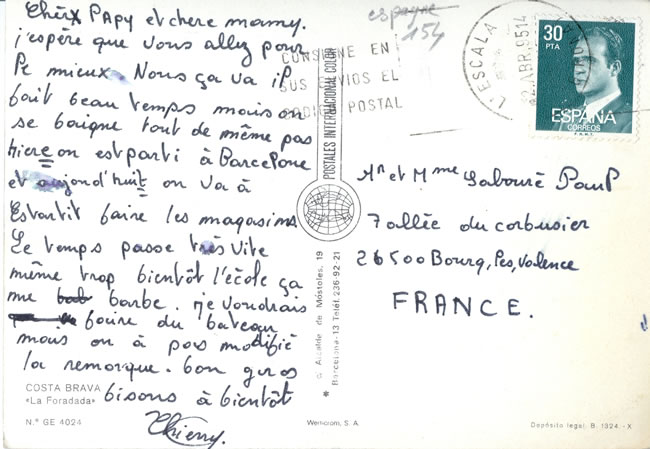 Chèrx Papy et chere mamy.
j'espère que vous allez pour
le mieux. Nous ça va il
fait beau temps mais on
se baigne tout de même pas
hiere on est parti à Barcelone
et aujond'huit on va à
Estartit faire les magasims
Le temps passe très vite
même trop bientôt l'école ça
me barbe. je voudrais
faire du bateau
mais on à pas modifié
la remorque. bon gros
bisons à bientôt
Thierry.
COSTA BRAVA
«La Foradada»
N.º GE 4024
espagne
154
CONSIGNE EN
SUS ENVIOS EL
CODIGO POSTAL
L'ESCALA
2 ABR. 95 14
30
PTA
ESPAÑA
CORREOS
F.N.M.T.
POSTALES INTERNACIONAL COLOR
Alcalde de Móstoles, 19
* Barcelona-13 Teléf. 236-92-21
Mr et Mme Labouré Paul
7 allée du corbusier
26500 Bourg, les, Valence
FRANCE.
Wernicrom, S. A.
Depósito legal: B. 1324. - X